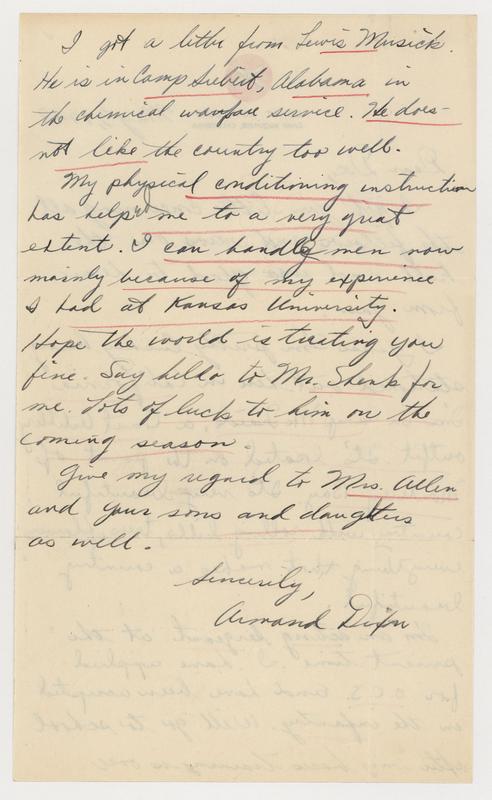 I got a letter from Lewis Musick.
He is in Camp Siebert, Alabama in
the chemical warfare service. He does
not like the country too well.
My physical conditioning instruction
has helped me to a very great
extent. I can handle men now
mainly because of my experience
I had at Kansas University.
Hope the world is treating you
fine. Say hello to Mr. Shenk for
me. Lots of luck to him on the
coming season.
Give my regard to Mrs. Allen
and your sons and daughters
as well.
Sincerely,
Armand Dixon